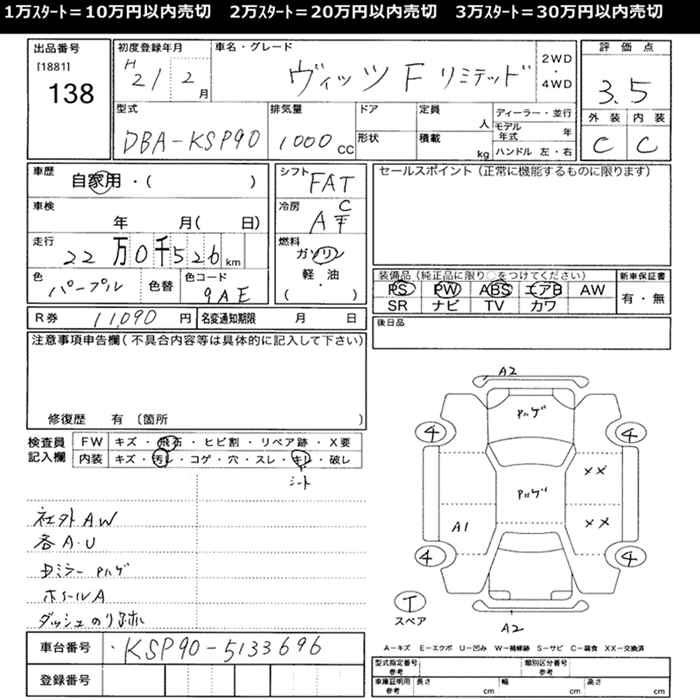 1万ｽﾀｰﾄ＝10万円以内売切　2万ｽﾀｰﾄ＝20万円以内売切　3万ｽﾀｰﾄ＝30万円以内売切
出品番号
[1881]
138
初度登録年月
H21 2月
車名・グレード
ヴィッツ F リミテッド
2WD・4WD
評価点
3.5
外装 内装
C C
型式
DBA-KSP90
排気量
1000 CC
ドア
形状
定員 人
積載 kg
ディーラー・並行
モデル年式 年
ハンドル 左・右
車歴
自家用・( )
車検
年 月( 日)
走行
22万0千526km
色
パープル
色替
色コード
9AE
シフト
FAT
冷房
AC
燃料
ガソリン
軽・油
( )
セールスポイント（正常に機能するものに限ります）
装備品（純正品に限り○をつけてください）
PS PW ABS エアB AW
SR ナビ TV カワ
新車保証書
有・無
R券 11,090 円
名変通知期限 月 日
後日品
注意事項申告欄（不具合内容等は具体的に記入して下さい）
修復歴 有〔箇所
検査員記入欄
FW キズ・飛石・ヒビ割・リペア跡・X要
内装 キズ・汚レ・コゲ・穴・スレ・キレ・破レ
シート
社外AW
各A・U
Dミラー Pハゲ
ホイールA
ダッシュのり跡
A2
Pハゲ
4 4
××
Pハゲ
A1 ××
4 4
T
スペア
A2
A−キズ E−エクボ U−凹み W−補修跡 S−サビ C−腐食 XX−交換済
車台番号
KSP90-5133696
登録番号
型式指定番号 参考
類別区分番号 参考
車庫証明用 参考
長さ cm 幅 cm 高さ cm